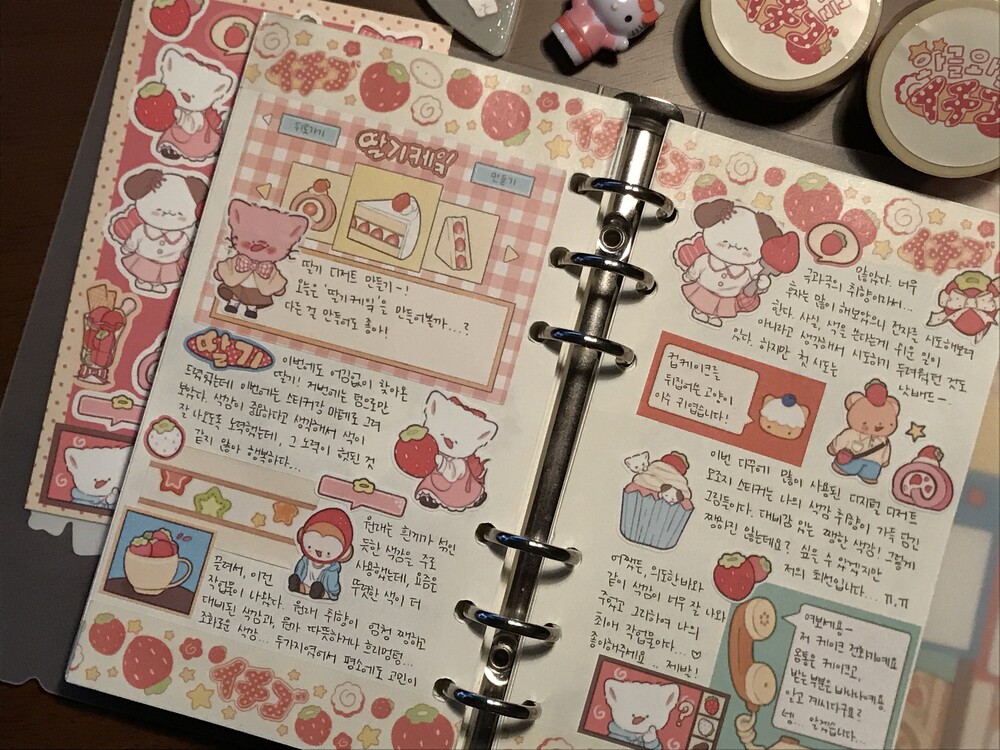 뒤로가기
딸기케잌
만들기
딸기 디저트 만들기-!
오늘은 '딸기케잌'을 만들어볼까...?
다른 걸 만들어도 좋아!
딸기
이번에도 어김없이 찾아온
딸기! 저번에는 펜으로만
드렸었는데 이번에는 스티커랑 마테로 그려
보았다. 색감이 중요하다고 생각해서 색이
잘 나오도록 노력했는데, 그 노력이 헛된 것
같지 않아 행복하다...
원래는 흰끼가 섞인
듯한 색감을 주로
사용했는데, 요즘은
뚜렷한 색이 더
끌려서, 이런
작업물이 나왔다. 원래 취향이 엄청 쨍하고
대비된 색감과, 뭔가 따뜻하거나 흐리멍텅...
조화로운 색감... 두가지였어서 평소에도 고민이
많았다. 너무
극과극의 취향이라서...
후자는 많이 해보았으니 전자를 시도해보려
한다. 사실, 색을 쓴다는게 쉬운 일이
아니라고 생각해서 시도하기 두려웠던 것도
있다. 하지만 첫 시도는
낫밷드-.
컵케이크를
뒤집어쓴 고양이
아주 귀엽습니다!
이번 다꾸에 많이 사용된 디지털 디저트
모조지 스티커는 나의 색감 취향이 가득 담긴
그림들이다. 대비감 있는 쨍한 색감! 그렇게
쨍하진 않는데요? 싶을 수 있겠지만
저의 최선입니다... ㅠ.ㅠ
어쨌든, 의도한 바와
같이 색감이 너무 잘 나와
주었고 고로하여 나의
최애 작업물이다...♡
좋아해주세요.. 제발!
여보케요-
저 케이크 전화기예요
몸통은 케이크고,
받는 부분은 바나나예요
알고 계시다구요?
넵... 알겠습니다...